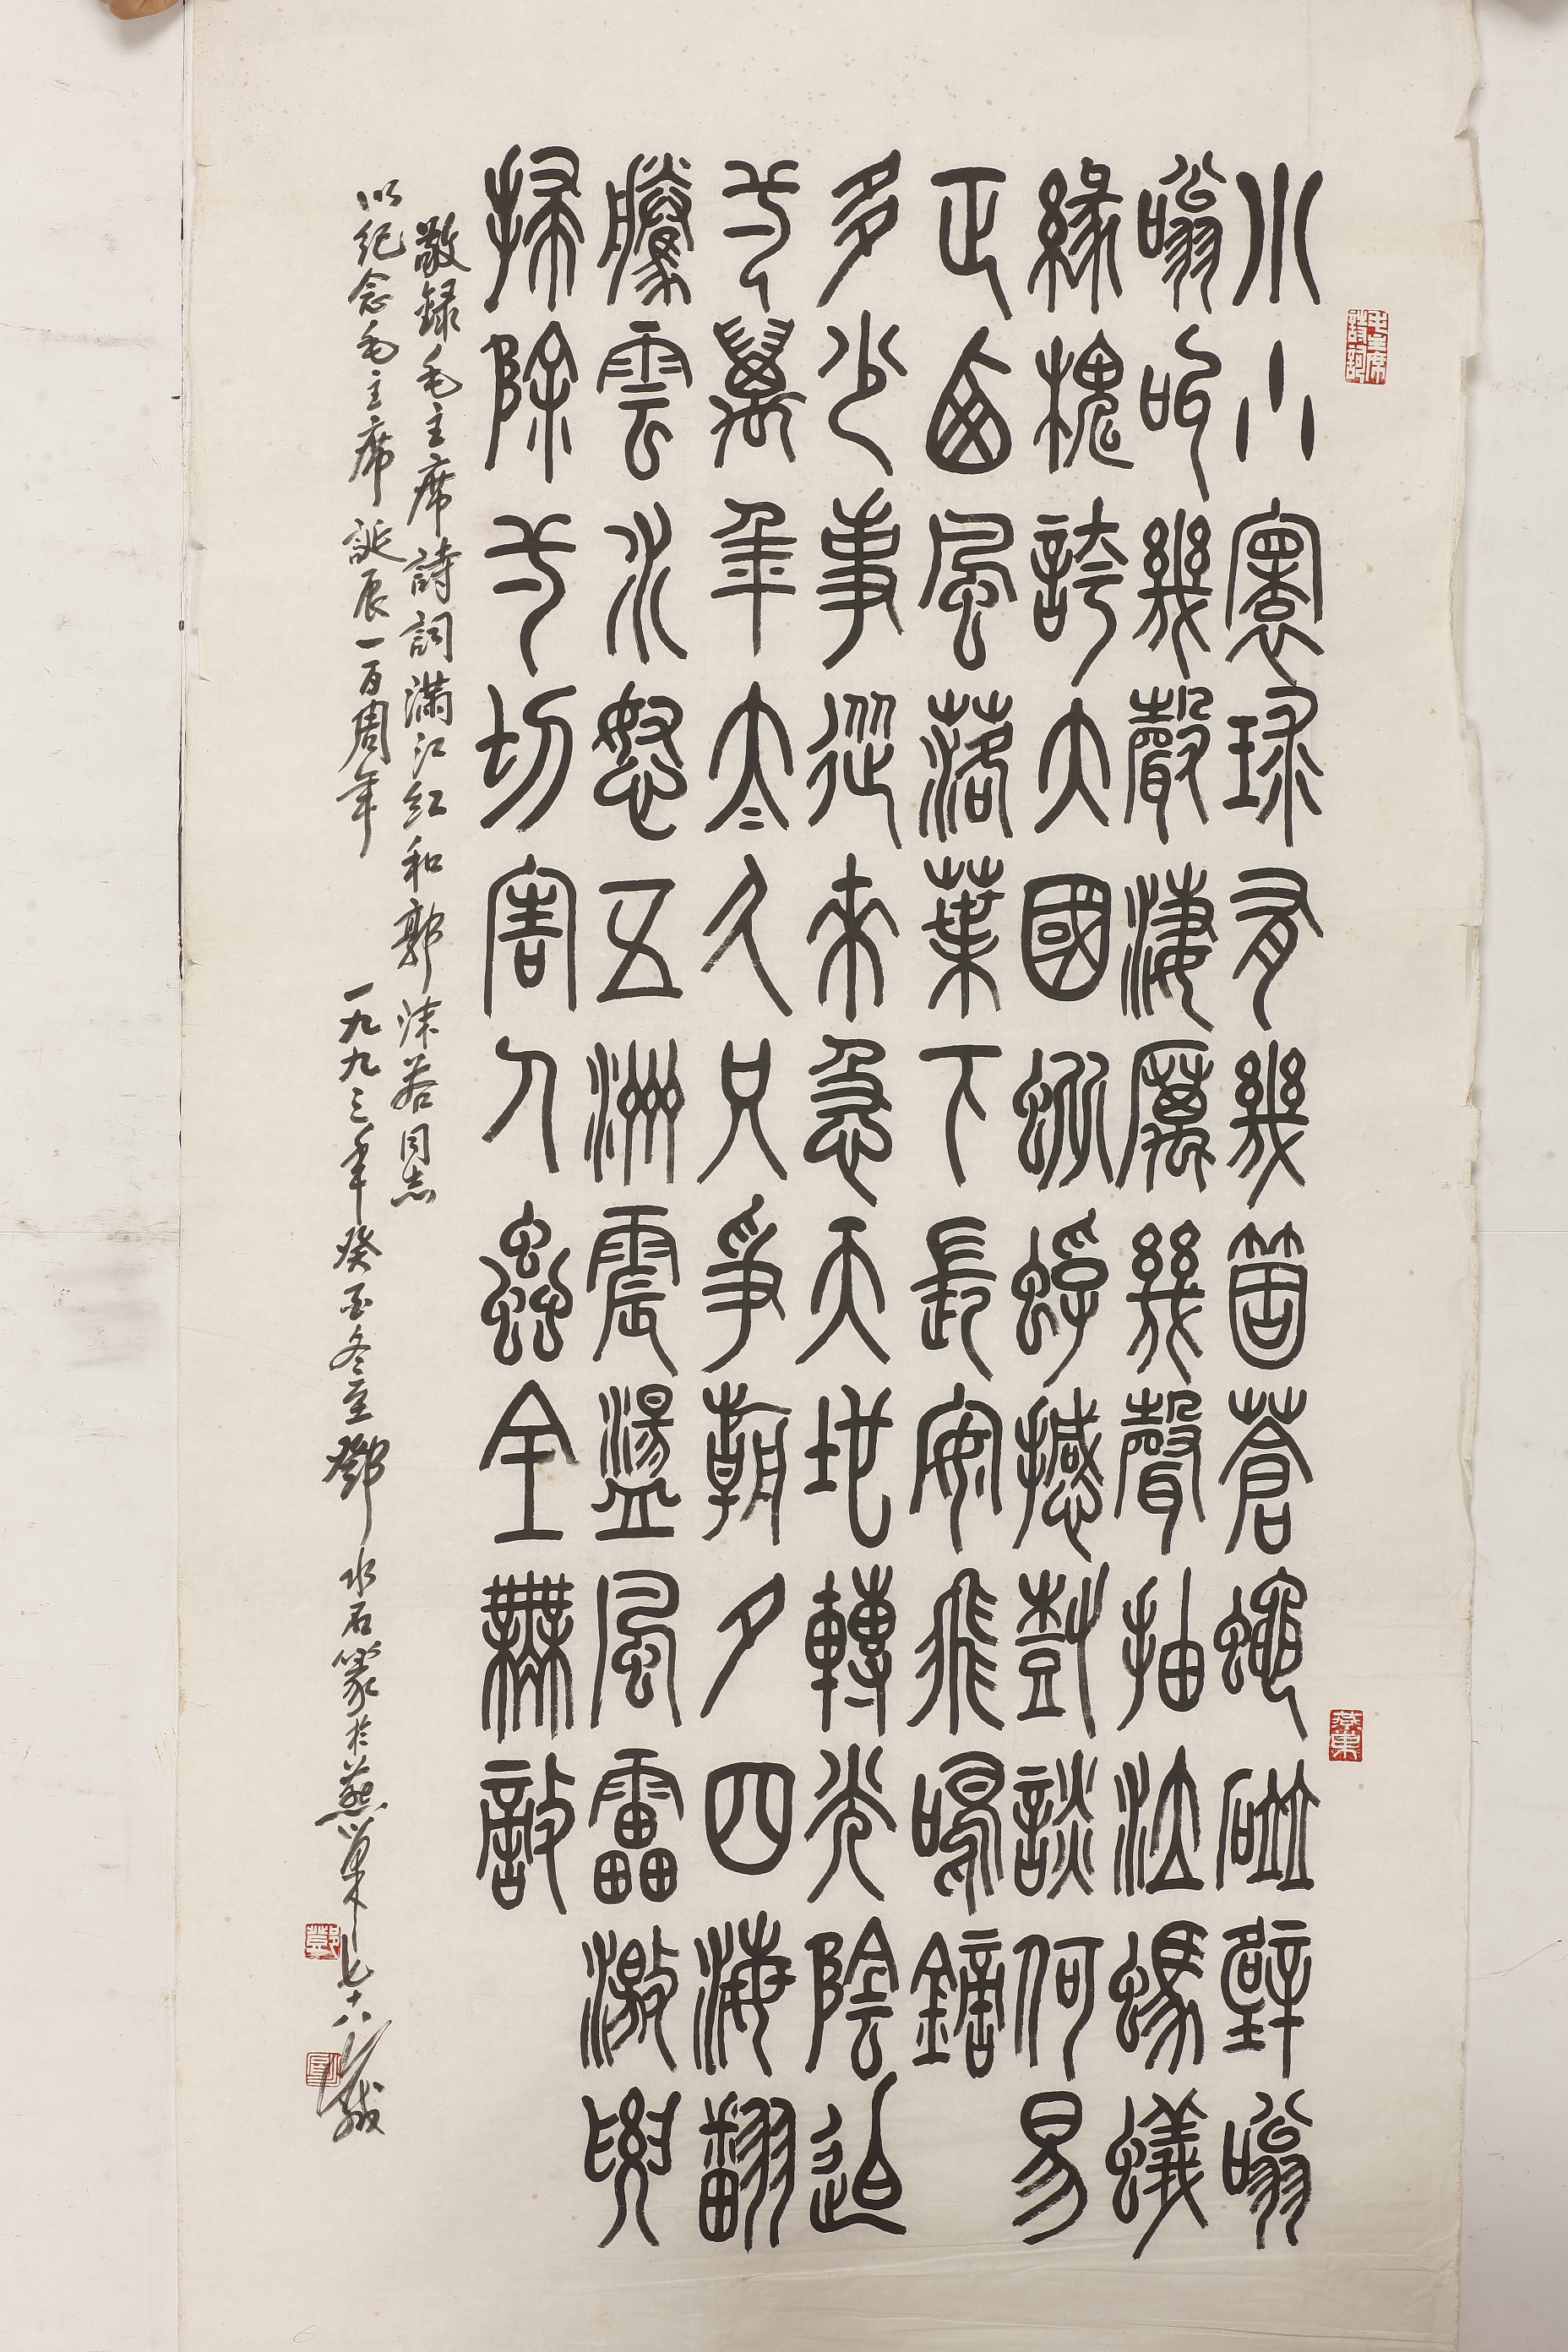 毛主席詩詞
小小寰球有幾箇蒼蠅碰壁嗡
嗡叫幾聲淒厲幾聲抽泣螞蟻
緣槐誇大國蚍蜉撼樹談何易
正西風落葉下長安飛鳴鏑
多少事從來急天地轉光陰迫
弌萬年太久只爭朝夕四海翻
騰雲水怒五洲震盪風雷激要
掃除弌切害人蟲全無敵
敬録毛主席詩詞滿江紅和郭沫若同志
以紀念毛主席誕辰一百周年 一九九三年癸酉冬至鄧水石篆於燕巢七十八歲
燕巢
鄧